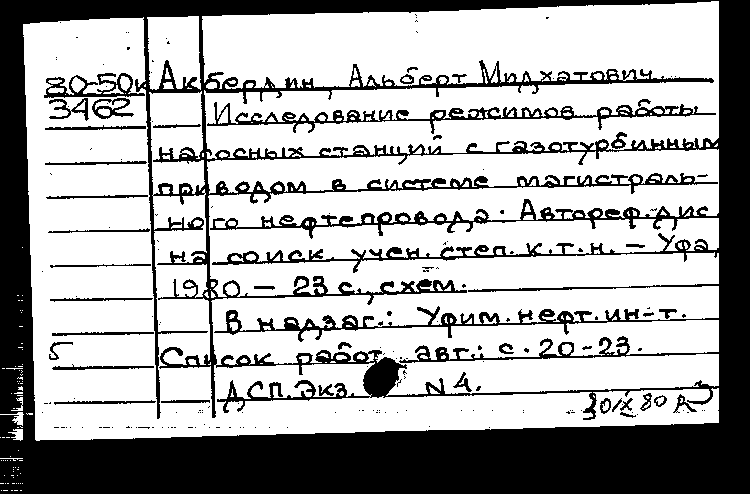 80-50к Акбердин, Альберт Мидхатович.
3462 Исследование режимов работы
насосных станций с газотурбинным
приводом в системе магистраль-
ного нефтепровода. Автореф. дис.
на соиск. учен. степ. к.т.н. – Уфа,
1980. – 23 с., схем.
В надзаг.: Уфим. нефт. ин-т.
5 Список работ авт.: с. 20-23.
ДСП. Экз. N 4.